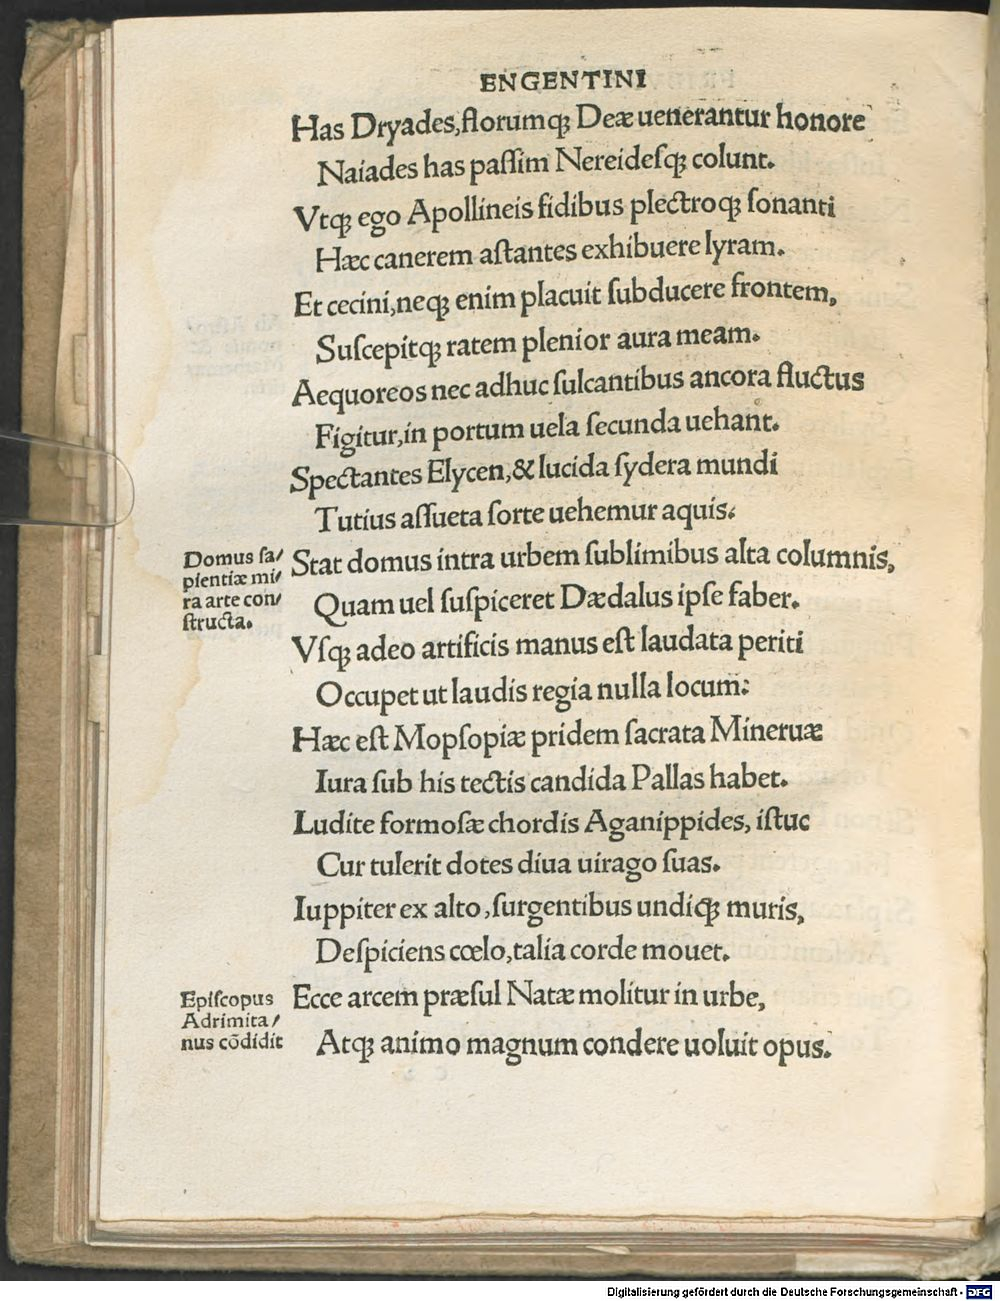 ENGENTINI
Has Dryades,florumqꝫ Deæ uenerantur honore
Naiades has paſſim Nereideſqꝫ colunt.
Vtqꝫ ego Apollineis fidibus plectroqꝫ ſonanti
Hæc canerem aſtantes exhibuere lyram.
Et cecini,neqꝫ enim placuit ſubducere frontem,
Suſcepitqꝫ ratem plenior aura meam.
Aequoreos nec adhuc ſulcantibus ancora fluctus
Figitur,in portum uela ſecunda uehant.
Spectantes Elycen,& lucida ſydera mundi
Tutius aſſueta ſorte uehemur aquis.
Domus ſa/
pientiæ mi/
ra arte con/
ſtructa.
Stat domus intra urbem ſublimibus alta columnis,
Quam uel ſuſpiceret Dædalus ipſe faber.
Vſqꝫ adeo artificis manus eſt laudata periti
Occupet ut laudis regia nulla locum:
Hæc eſt Mopſopiæ pridem ſacrata Mineruæ
Iura ſub his tectis candida Pallas habet.
Ludite formoſæ chordis Aganippides, iſtuc
Cur tulerit dotes diua uirago ſuas.
Iuppiter ex alto,ſurgentibus undiqꝫ muris,
Deſpiciens cœlo,talia corde mouet.
Epiſcopus
Adrimita/
nus cōdidit
Ecce arcem præſul Natæ molitur in urbe,
Atqꝫ animo magnum condere uoluit opus.
Digitalisierung gefördert durch die Deutsche Forschungsgemeinschaft - DFG